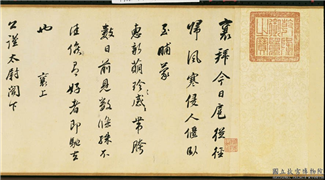 襄拜今日扈從徑
歸風寒侵人偃臥
至晡蒙
惠新萌珍感帶胯
數日前見數條殊不
佳候有好者即馳去
也 襄上
公謹太尉閣下
國立故宮博物院